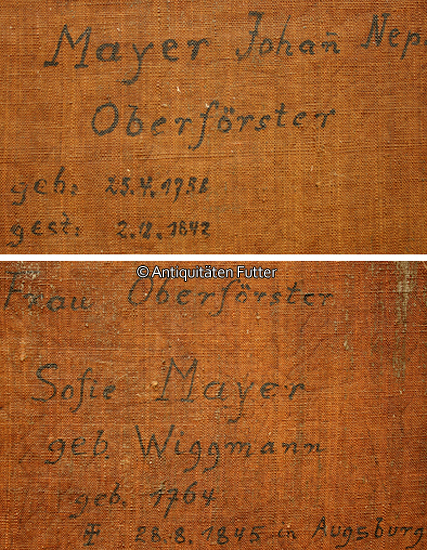 Mayer Johan̄ Nep.
Oberförster
geb: 25.4.1758
gest: 2.2.1842
© Antiquitäten Futter
Frau Oberförster
Sofie Mayer
geb. Wiggmann
geb. 1764
28.8.1845 in Augsburg